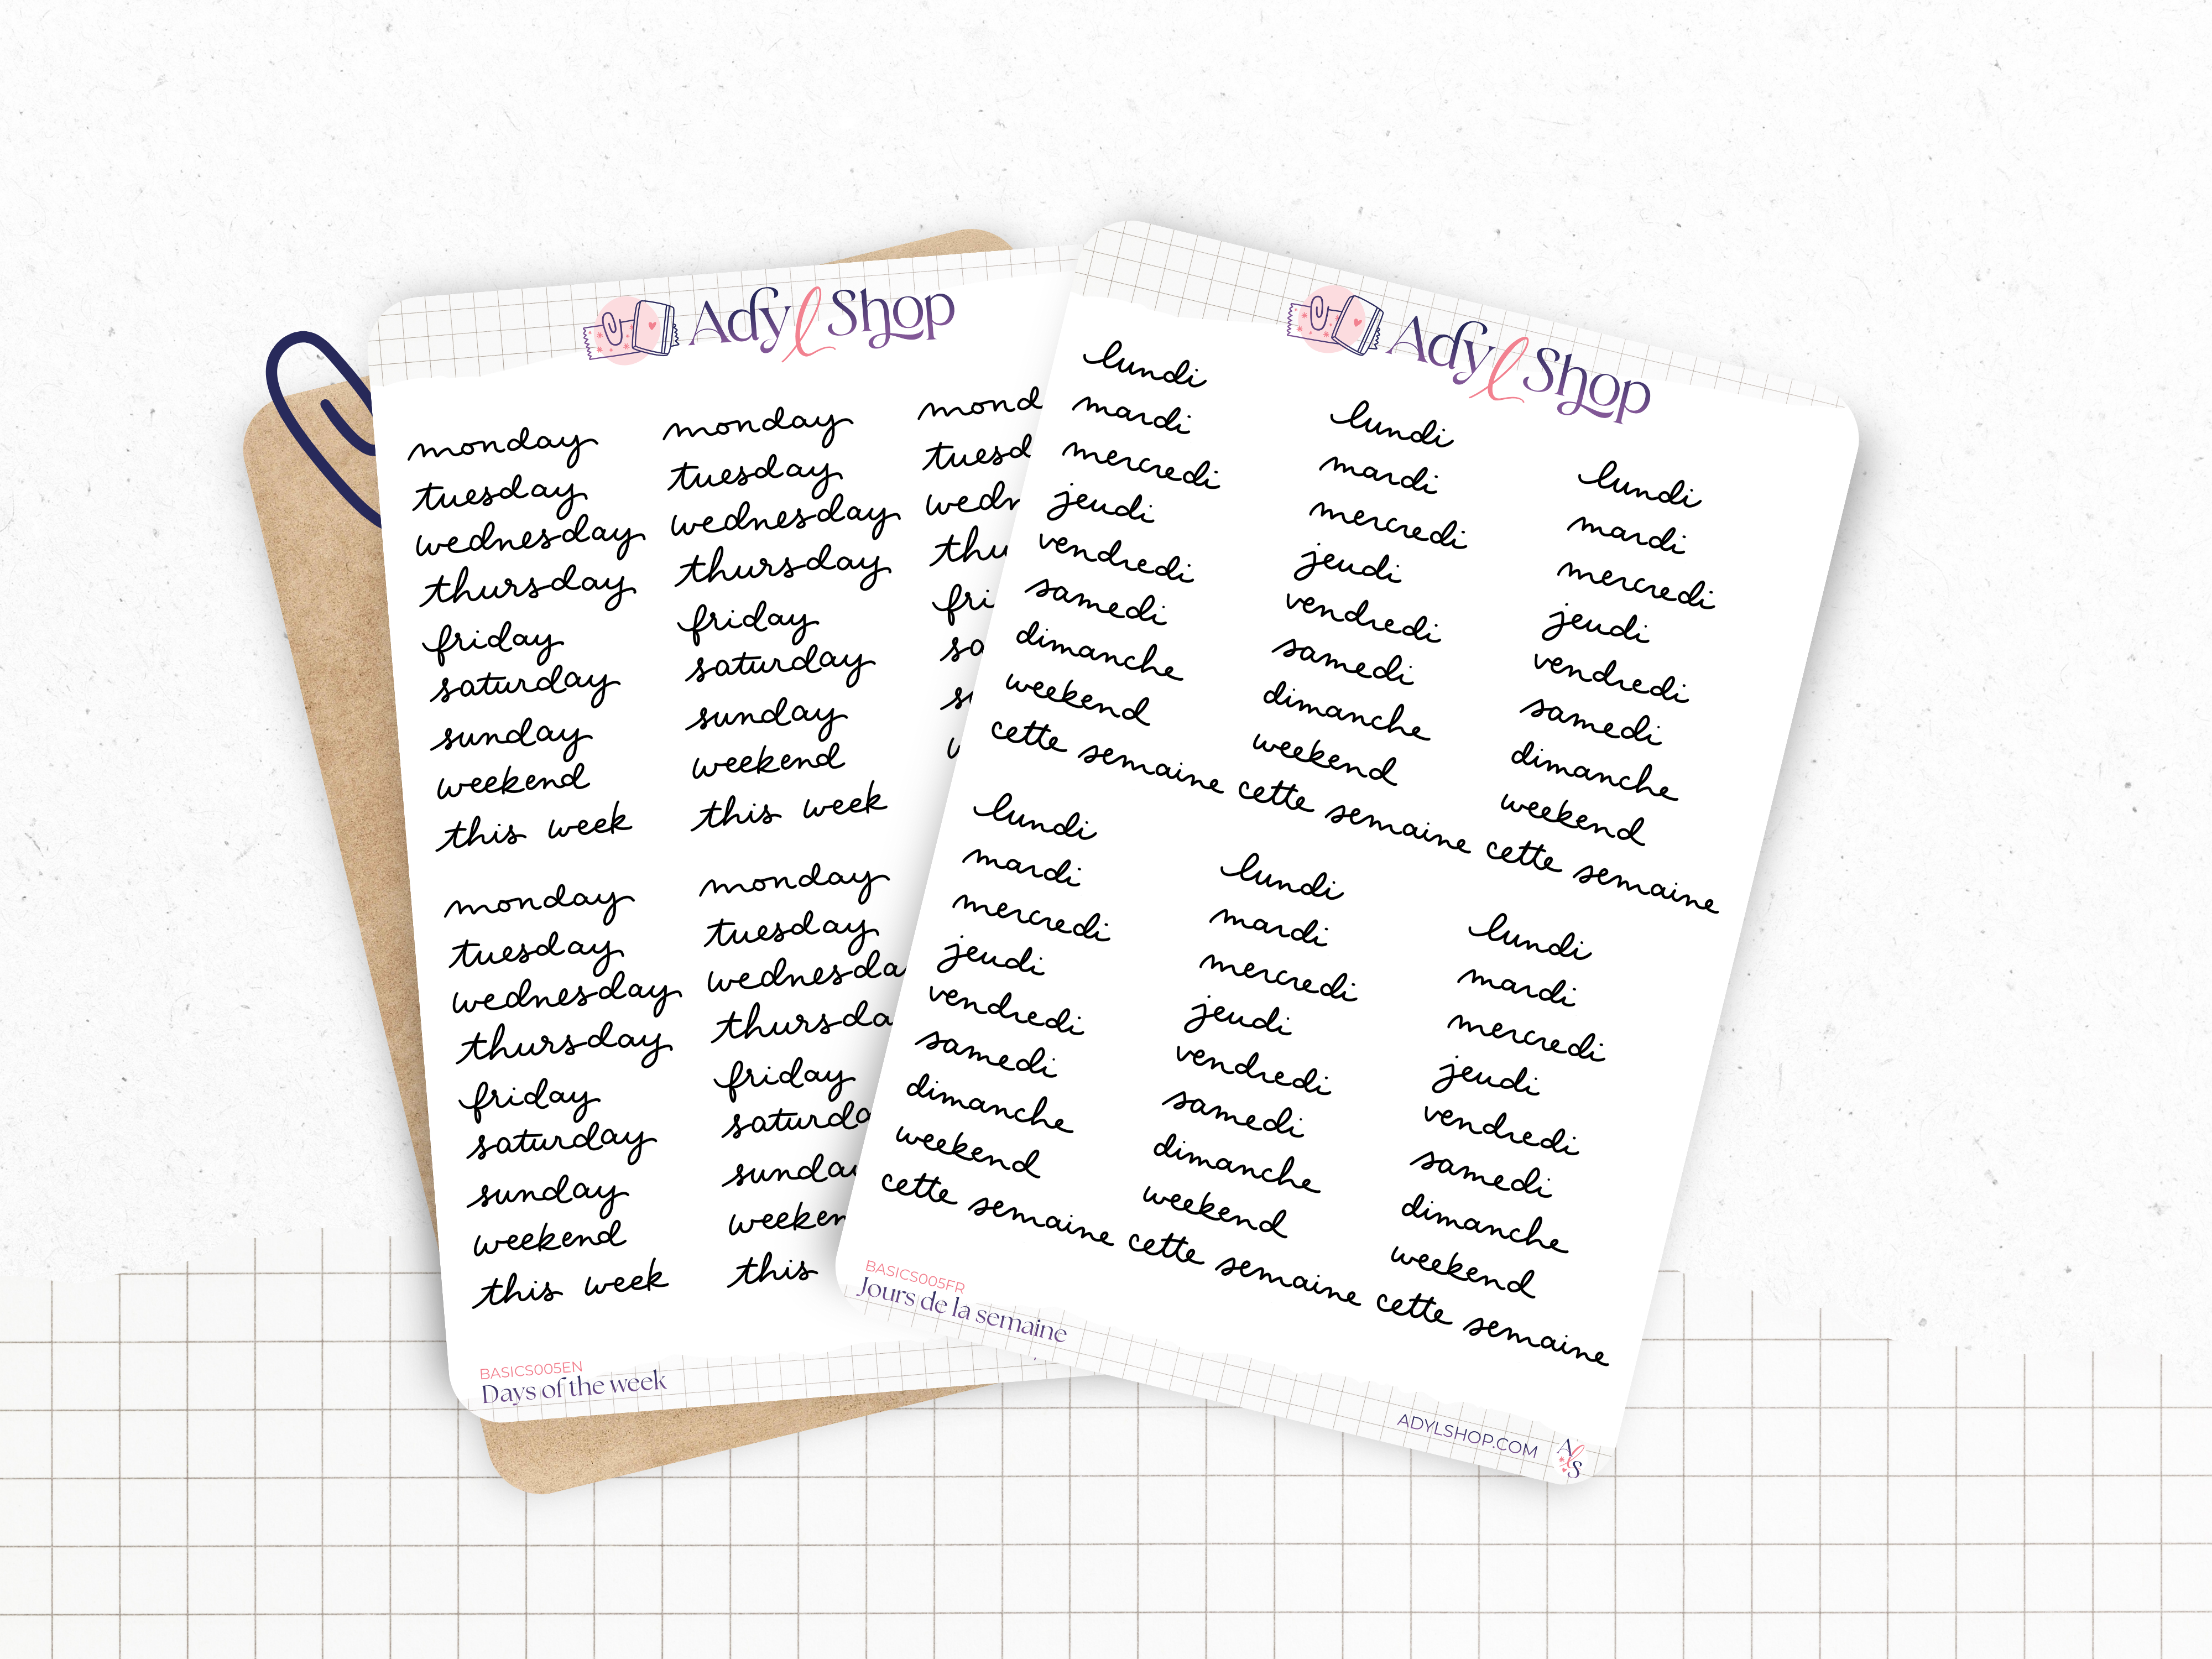 Adyl Shop
monday
tuesday
wednesday
thursday
friday
saturday
sunday
weekend
this week
monday
tuesday
wednesday
thursday
friday
saturday
sunday
weekend
this week
mond
tuesd
wedn
thu
fri
sa
monday
tuesday
wednesday
thursday
friday
saturday
sunday
weekend
this week
monday
tuesday
wednesda
thursda
friday
saturda
sunda
weeken
this
BASICS005EN
Days of the week
Adyl Shop
lundi
mardi
mercredi
jeudi
vendredi
samedi
dimanche
weekend
cette semaine
lundi
mardi
mercredi
jeudi
vendredi
samedi
dimanche
weekend
cette semaine
lundi
mardi
mercredi
jeudi
vendredi
samedi
dimanche
weekend
cette semaine
lundi
mardi
mercredi
jeudi
vendredi
samedi
dimanche
weekend
cette semaine
lundi
mardi
mercredi
jeudi
vendredi
samedi
dimanche
weekend
cette semaine
lundi
mardi
mercredi
jeudi
vendredi
samedi
dimanche
weekend
cette semaine
BASICS005FR
Jours de la semaine
ADYLSHOP.COM
AlS